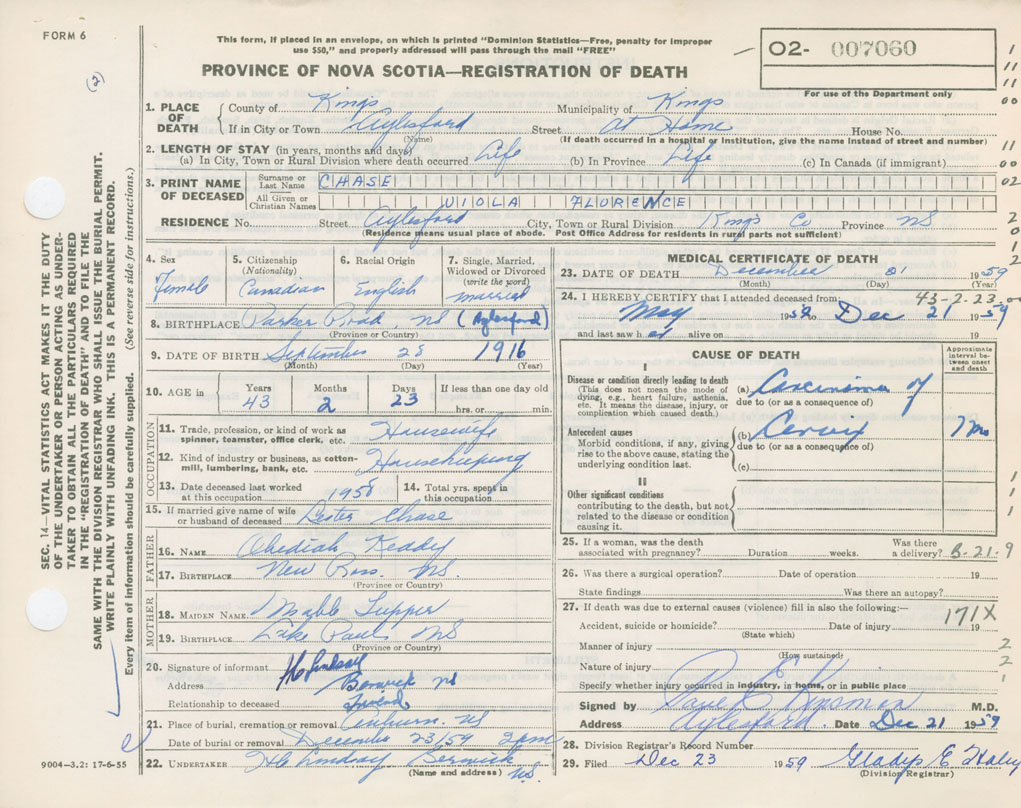 FORM 6
This form, if placed in an envelope, on which is printed "Dominion Statistics—Free, penalty for improper
use $50," and properly addressed will pass through the mail "FREE"
O2- 007060
For use of the Department only
PROVINCE OF NOVA SCOTIA—REGISTRATION OF DEATH
(2)
SEC. 14—VITAL STATISTICS ACT MAKES IT THE DUTY
OF THE UNDERTAKER OR PERSON ACTING AS UNDER-
TAKER TO OBTAIN ALL THE PARTICULARS REQUIRED
IN THE "REGISTRATION OF DEATH" AND TO FILE THE
SAME WITH THE DIVISION REGISTRAR WHO SHALL ISSUE THE BURIAL PERMIT.
WRITE PLAINLY WITH UNFADING INK. THIS IS A PERMANENT RECORD.
Every item of information should be carefully supplied. (See reverse side for instructions.)
1. PLACE OF DEATH
County of Kings Municipality of Kings
If in City or Town Aylesford Street At Home House No.
(Name) (If death occurred in a hospital or institution, give the name instead of street and number)
2. LENGTH OF STAY (in years, months and days)
(a) In City, Town or Rural Division where death occurred Life (b) In Province Life (c) In Canada (if immigrant)
3. PRINT NAME OF DECEASED
Surname or Last Name CHASE
All Given or Christian Names VIOLA FLORENCE
RESIDENCE No. Street Aylesford City, Town or Rural Division Kings Co Province NS
(Residence means usual place of abode. Post Office Address for residents in rural parts not sufficient)
4. Sex Female
5. Citizenship (Nationality) Canadian
6. Racial Origin English
7. Single, Married, Widowed or Divorced (write the word) married
8. BIRTHPLACE Parker Road, NS (Aylesford)
(Province or Country)
9. DATE OF BIRTH September 28 1916
(Month) (Day) (Year)
10. AGE in Years 43 Months 2 Days 23 If less than one day old hrs. or min.
OCCUPATION
11. Trade, profession, or kind of work as spinner, teamster, office clerk, etc. Housewife
12. Kind of industry or business, as cotton-mill, lumbering, bank, etc. Housekeeping
13. Date deceased last worked at this occupation 1958
14. Total yrs. spent in this occupation
15. If married give name of wife or husband of deceased Lester Chase
FATHER
16. NAME Obediah Keddy
17. BIRTHPLACE New Ross NS.
(Province or Country)
MOTHER
18. MAIDEN NAME Mable Tupper
19. BIRTHPLACE Lake Paul NS
(Province or Country)
20. Signature of informant H C Lindsay
Address Berwick NS
Relationship to deceased Friend
21. Place of burial, cremation or removal Auburn. NS
Date of burial or removal December 23/59 2 pm
22. UNDERTAKER H C Lindsay Berwick NS
(Name and address)
9004—3.2: 17-6-55
MEDICAL CERTIFICATE OF DEATH
23. DATE OF DEATH December 21 1959
(Month) (Day) (Year)
43-2-23
24. I HEREBY CERTIFY that I attended deceased from:
May 1959 to Dec 21 1959
and last saw h er alive on 19
CAUSE OF DEATH
Approximate interval between onset and death
I
Disease or condition directly leading to death
(This does not mean the mode of dying, e.g., heart failure, asthenia, etc. It means the disease, injury, or complication which caused death.)
(a) Carcinoma of
due to (or as a consequence of)
Antecedent causes
Morbid conditions, if any, giving rise to the above cause, stating the underlying condition last.
(b) Cervix 7 mo
due to (or as a consequence of)
(c)
II
Other significant conditions
contributing to the death, but not related to the disease or condition causing it.
25. If a woman, was the death associated with pregnancy? Duration weeks. Was there a delivery?
26. Was there a surgical operation? Date of operation 19
State findings Was there an autopsy?
27. If death was due to external causes (violence) fill in also the following:—
171X
Accident, suicide or homicide? Date of injury 19
(State which)
Manner of injury
(How sustained)
Nature of injury
Specify whether injury occurred in industry, in home, or in public place
Signed by M.D.
Address Aylesford. Date Dec 21 1959
28. Division Registrar's Record Number
29. Filed Dec 23 1959 Gladys E
(Division Registrar)